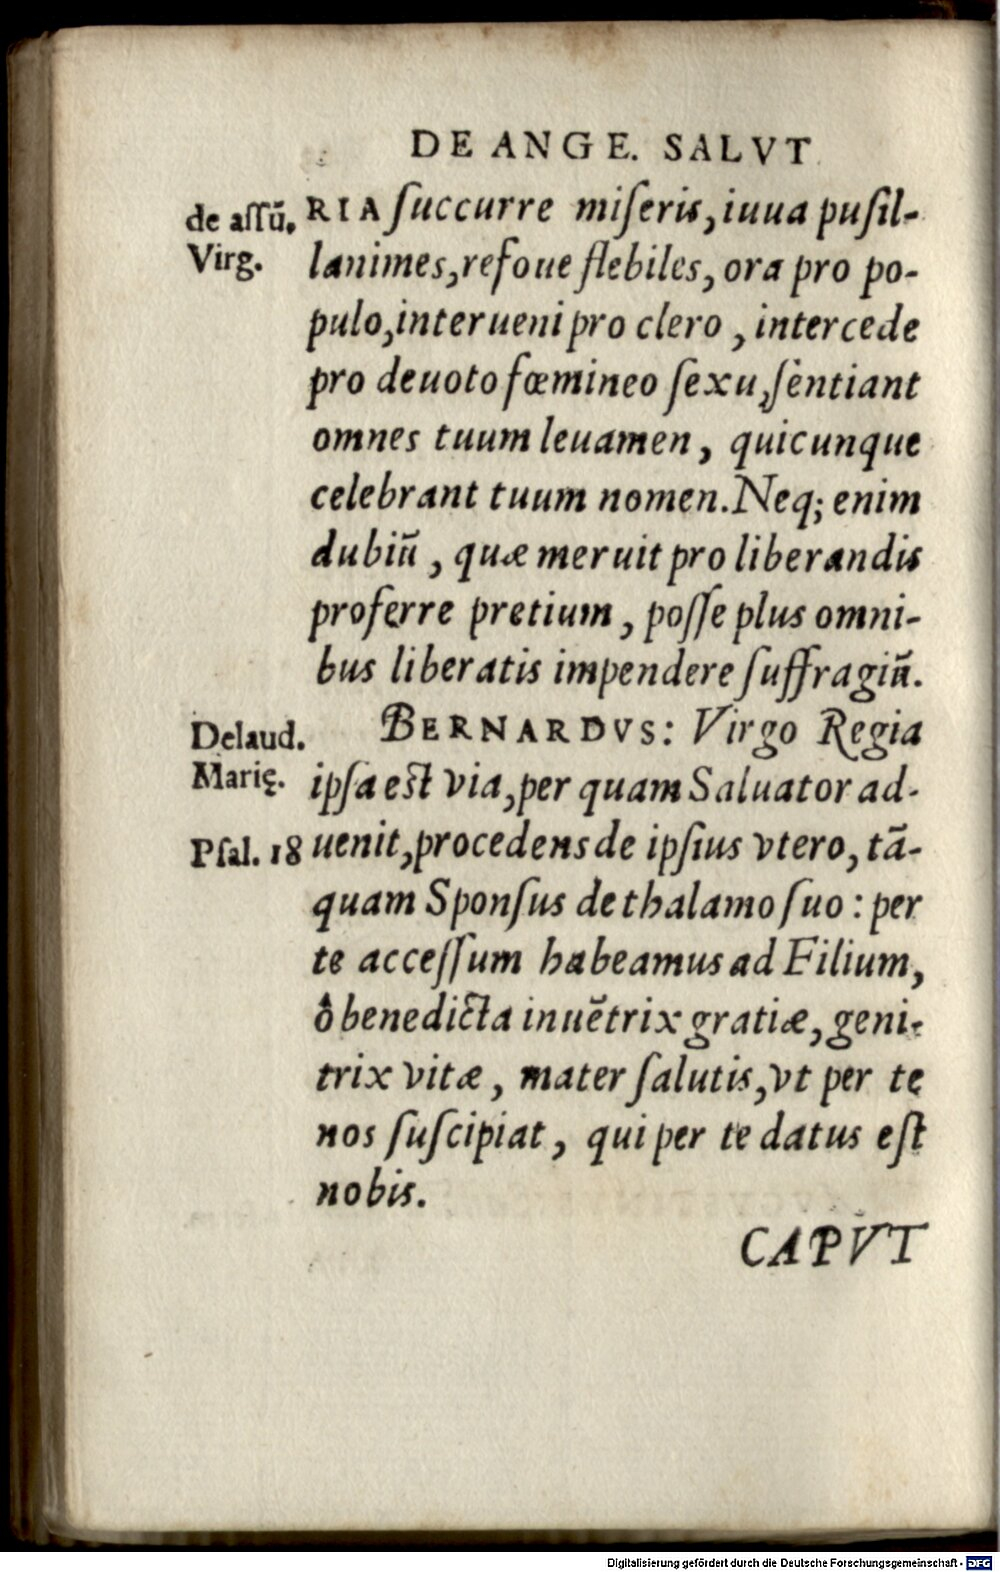 DE ANGE. SALVT
de assū.
Virg.
RIA succurre miseris, iuua pusil-
lanimes, refoue flebiles, ora pro po-
pulo, interueni pro clero, intercede
pro deuoto fœmineo sexu, sentiant
omnes tuum leuamen, quicunque
celebrant tuum nomen. Neq; enim
dubiū, quæ meruit pro liberandis
proferre pretium, posse plus omni-
bus liberatis impendere suffragiū.
Delaud.
Marię.
BERNARDVS: Virgo Regia
ipsa est via, per quam Saluator ad-
Psal. 18
uenit, procedens de ipsius vtero, tā-
quam Sponsus de thalamo suo: per
te accessum habeamus ad Filium,
ô benedicta inuētrix gratiæ, geni-
trix vitæ, mater salutis, vt per te
nos suscipiat, qui per te datus est
nobis.
CAPVT
Digitalisierung gefördert durch die Deutsche Forschungsgemeinschaft - DFG